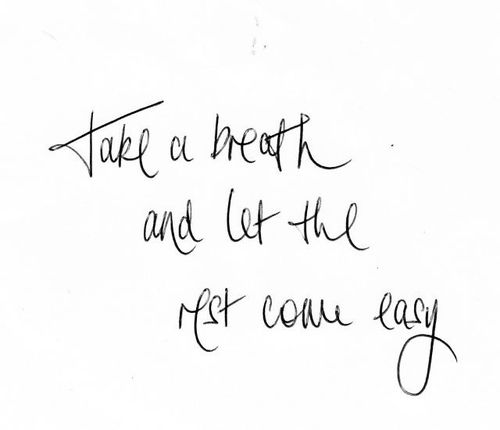 Take a breath
and let the
rest come easy